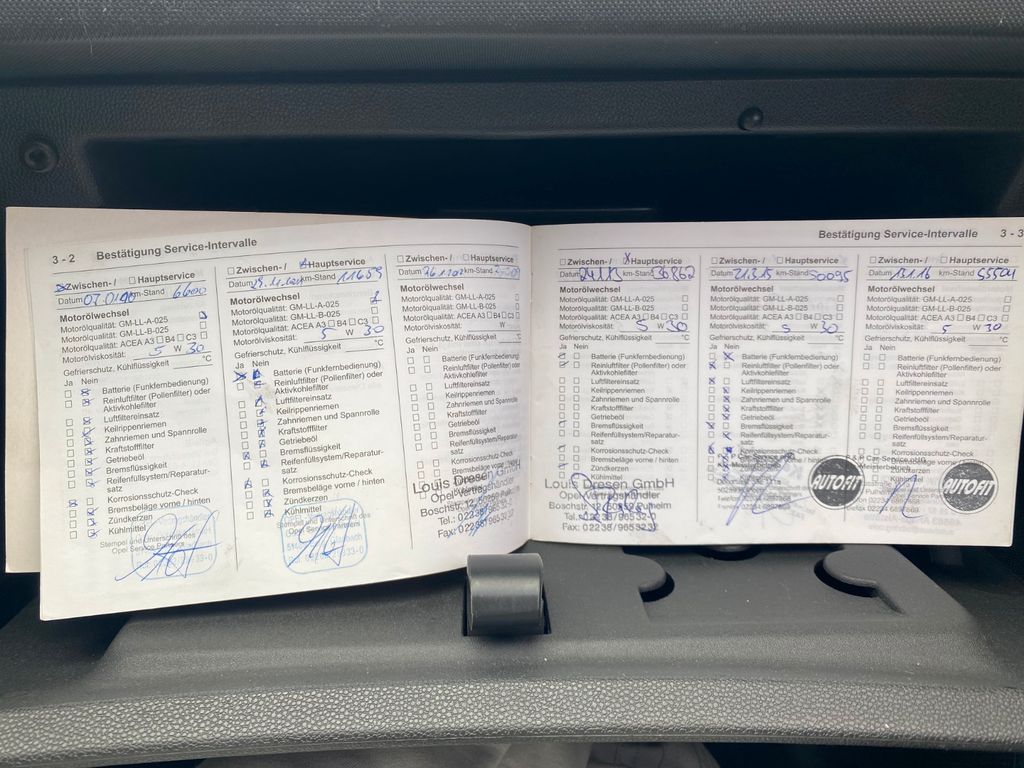 3 - 2 Bestätigung Service-Intervalle
Zwischen-/ Hauptservice
Datum km-Stand 6600
Motorölwechsel
Motorölqualität: GM-LL-A-025
GM-LL-B-025
Motorölqualität: ACEA A3 B4 C3
Motorölviskosität: 5 W 30
Gefrierschutz, Kühlflüssigkeit °C
Ja Nein
Batterie (Funkfernbedienung)
Reinluftfilter (Pollenfilter) oder
Aktivkohlefilter
Luftfiltereinsatz
Keilrippenriemen
Zahnriemen und Spannrolle
Kraftstofffilter
Getriebeöl
Bremsflüssigkeit
Reifenfüllsystem/Reparatur-
satz
Korrosionsschutz-Check
Bremsbeläge vorne / hinten
Zündkerzen
Kühlmittel
Stempel und Unterschrift des
Opel Service Partners
Zwischen-/ Hauptservice
Datum km-Stand 11659
Motorölwechsel
Motorölqualität: GM-LL-A-025
GM-LL-B-025
Motorölqualität: ACEA A3 B4 C3
Motorölviskosität: 5 W 30
Gefrierschutz, Kühlflüssigkeit °C
Ja Nein
Batterie (Funkfernbedienung)
Reinluftfilter (Pollenfilter) oder
Aktivkohlefilter
Luftfiltereinsatz
Keilrippenriemen
Zahnriemen und Spannrolle
Kraftstofffilter
Getriebeöl
Bremsflüssigkeit
Reifenfüllsystem/Reparatur-
satz
Korrosionsschutz-Check
Bremsbeläge vorne / hinten
Zündkerzen
Kühlmittel
Stempel und Unterschrift des
Opel Service Partners
Zwischen-/ Hauptservice
Datum km-Stand
Motorölwechsel
Motorölqualität: GM-LL-A-025
GM-LL-B-025
Motorölqualität: ACEA A3 B4 C3
Motorölviskosität: W
Gefrierschutz, Kühlflüssigkeit °C
Ja Nein
Batterie (Funkfernbedienung)
Reinluftfilter (Pollenfilter) oder
Aktivkohlefilter
Luftfiltereinsatz
Keilrippenriemen
Zahnriemen und Spannrolle
Kraftstofffilter
Getriebeöl
Bremsflüssigkeit
Reifenfüllsystem/Reparatur-
satz
Korrosionsschutz-Check
Bremsbeläge vorne
Zündkerzen
Louis Dresen
Opel Vertragshändler
Boschstr. 12,
Tel.: 02238/96532-0
Fax: 02238/
Bestätigung Service-Intervalle 3 - 3
Zwischen-/ Hauptservice
Datum km-Stand 36862
Motorölwechsel
Motorölqualität: GM-LL-A-025
GM-LL-B-025
Motorölqualität: ACEA A3 B4 C3
Motorölviskosität: 5 W 30
Gefrierschutz, Kühlflüssigkeit °C
Ja Nein
Batterie (Funkfernbedienung)
Reinluftfilter (Pollenfilter) oder
Aktivkohlefilter
Luftfiltereinsatz
Keilrippenriemen
Zahnriemen und Spannrolle
Kraftstofffilter
Getriebeöl
Bremsflüssigkeit
Reifenfüllsystem/Reparatur-
satz
Korrosionsschutz-Check
Bremsbeläge vorne / hinten
Zündkerzen
Kühlmittel
Louis Dresen GmbH
Opel Vertragshändler
Boschstr. 12, Pulheim
Tel.: 02238/96532-0
Fax: 02238/965232
Zwischen-/ Hauptservice
Datum 2.13.15 km-Stand 50095
Motorölwechsel
Motorölqualität: GM-LL-A-025
GM-LL-B-025
Motorölqualität: ACEA A3 B4 C3
Motorölviskosität: 5 W 30
Gefrierschutz, Kühlflüssigkeit °C
Ja Nein
Batterie (Funkfernbedienung)
Reinluftfilter (Pollenfilter) oder
Aktivkohlefilter
Luftfiltereinsatz
Keilrippenriemen
Zahnriemen und Spannrolle
Kraftstofffilter
Getriebeöl
Bremsflüssigkeit
Reifenfüllsystem/Reparatur-
satz
Korrosionsschutz-Check
Bremsbeläge vorne / hinten
AUTOFIT
Zwischen-/ Hauptservice
Datum km-Stand 65504
Motorölwechsel
Motorölqualität: GM-LL-A-025
GM-LL-B-025
Motorölqualität: ACEA A3 B4 C3
Motorölviskosität: 5 W 30
Gefrierschutz, Kühlflüssigkeit °C
Ja Nein
Batterie (Funkfernbedienung)
Reinluftfilter (Pollenfilter) oder
Aktivkohlefilter
Luftfiltereinsatz
Keilrippenriemen
Zahnriemen und Spannrolle
Kraftstofffilter
Getriebeöl
Bremsflüssigkeit
Reifenfüllsystem/Reparatur-
satz
Korrosionsschutz-Check
AUTOFIT